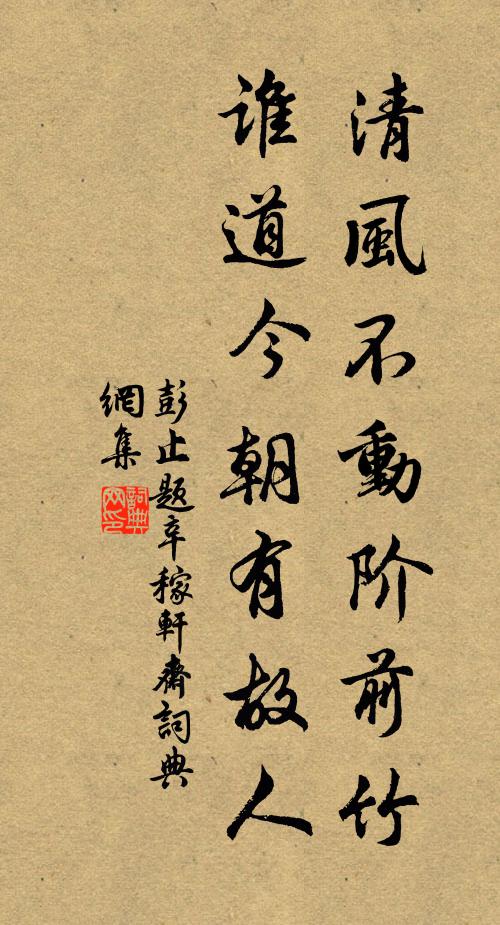 清風不動阶前竹
誰道今朝有故人
彭止题辛稼軒齋詞典
網集
詞典
网印